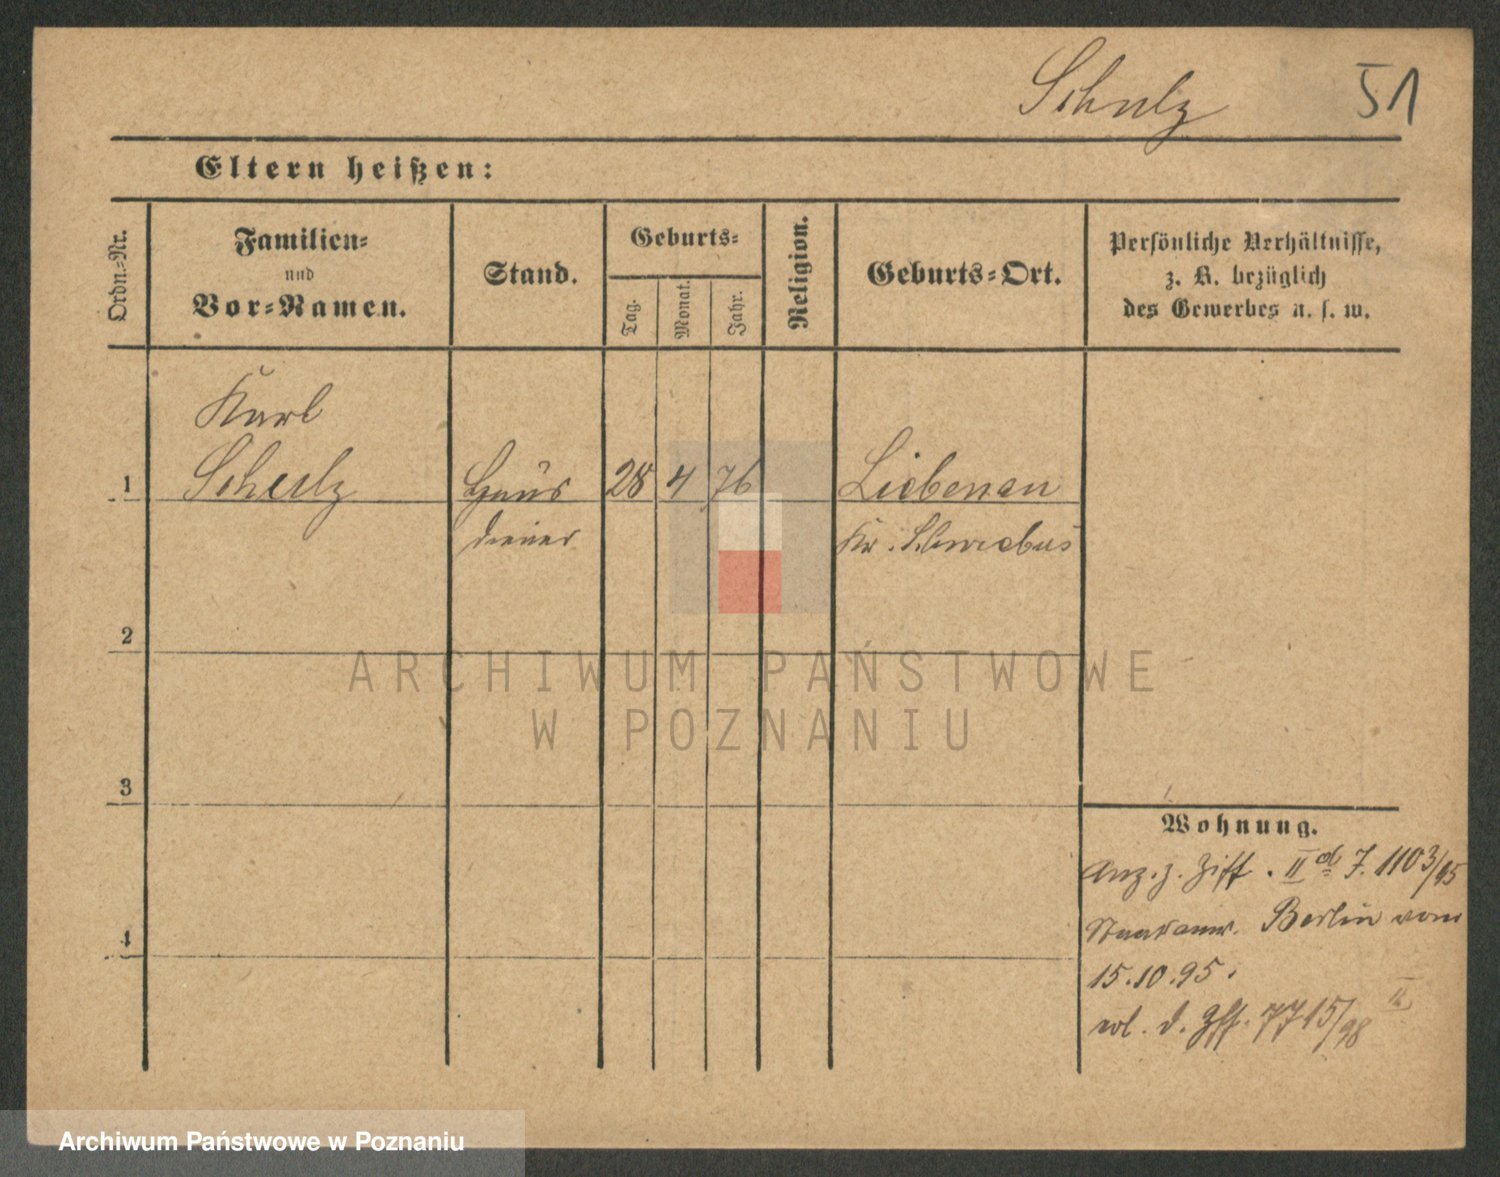 Schulz 51
Eltern heißen:
Ordn.-Nr.
Familien-
und
Vor-Namen.
Stand.
Geburts-
Tag.
Monat.
Jahr.
Religion.
Geburts-Ort.
Persönliche Verhältnisse,
z. B. bezüglich
des Gewerbes u. s. w.
Karl
1 Schulz Haus 28 4 76 Liebenau
diener Kr. Schwiebus
2
ARCHIWUM PAŃSTWOWE
W POZNANIU
3
Wohnung.
Anz. z. Ziff. II d J. 1103/95
4
Staatsanw. Berlin vom
15.10.95.
erl. d. Zff. 7715/98 II
Archiwum Państwowe w Poznaniu